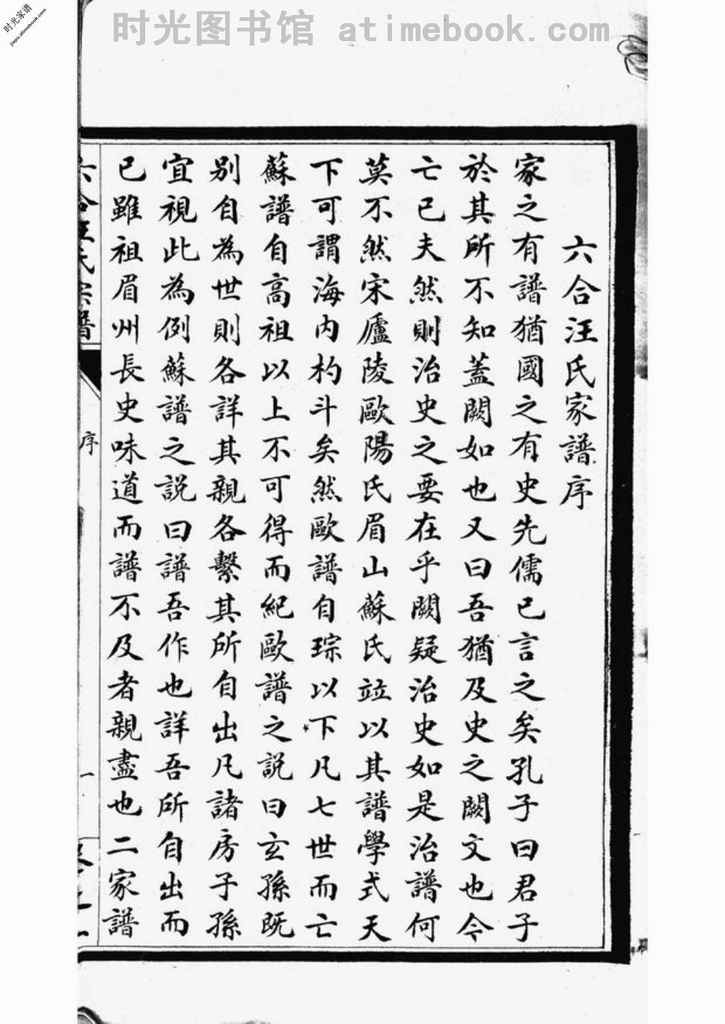 时光图书馆 atimebook.com
时光家谱
六合汪氏家譜序
家之有譜猶國之有史先儒已言之矣孔子曰君子
於其所不知蓋闕如也又曰吾猶及史之闕文也今
亡已夫然則治史之要在乎闕疑治史如是治譜何
莫不然宋廬陵歐陽氏眉山蘇氏竝以其譜學式天
下可謂海內杓斗矣然歐譜自琮以下凡七世而亡
蘇譜自高祖以上不可得而紀歐譜之說曰玄孫既
別自為世則各詳其親各繫其所自出凡諸房子孫
宜視此為例蘇譜之說曰譜吾作也詳吾所自出而
已雖祖眉州長史味道而譜不及者親盡也二家譜
六合汪氏宗譜
序
一